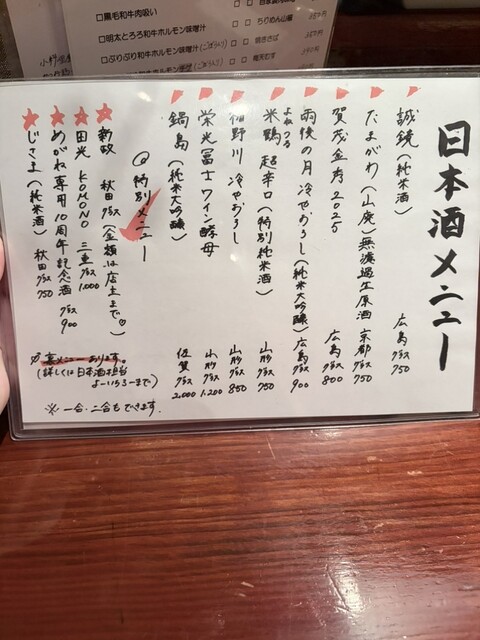 □黒毛和牛肉吸い
□明太とろろ和牛ホルモン味噌汁
□ぷりぷり和牛ホルモン味噌汁(ごぼう入り)
□ちりめん山椒
□焼きさば
日本酒メニュー
誠鏡(純米酒) 広島グラス750
たまがわ(山廃)無濾過生原酒 京都グラス750
賀茂金秀2025 広島グラス800
雨後の月 冷やおろし(純米大吟醸) 広島グラス900
よねつる
米鶴 超辛口(特別純米酒) 山形グラス750
稲野川 冷やおろし 山形グラス850
栄光冨士ワイン酵母 山形グラス1.200
鍋島(純米大吟醸) 佐賀グラス2.000
◎特別メニュー
新政 秋田グラス(金額は店主まで♡)
田光 KOMONO 三重グラス1.000
めがね専用10周年記念酒 グラス900
じさま(純米酒) 秋田グラス750
裏メニューあります。
(詳しくは日本酒担当
よーいちろーまで)
※一合、二合もできます。